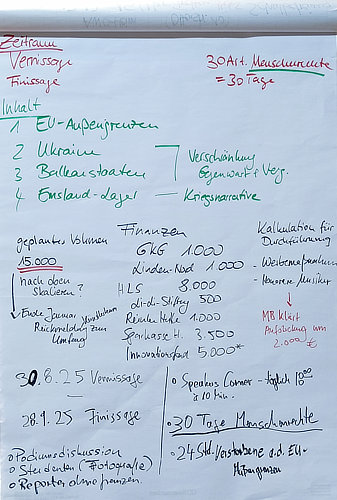 Zeitraum
Vernissage
Finissage
30 Art. Menschenrechte
= 30 Tage
Inhalt
1 EU-Außengrenzen
2 Ukraine
3 Balkanstaaten
4 Emsland-Lager
Verschränkung
Gegenwart + Verg.
Kriegsnarrative
geplantes Volumen
15.000
nach oben
Skalieren?
Ende Januar
Rückmeldung zum
Umfang
Finanzen
GKG 1.000
Linden-Nord 1.000
HLS 8.000
Li-di-Stiftg 500
1.000
Sparkasse H. 3.500
Innovationsfond 5.000*
Kalkulation für
Durchführung
- Werbemaßnahmen
- Honorare Musiker
MB klärt
Aufstockung um
2.000 €
30.8.25 Vernissage
28.9.25 Finissage
o Podiumsdiskussion
o Studenten (Fotografie)
o Reporter ohne Grenzen
o Speakers Corner - täglich 10⁰⁰
à 10 Min.
o 30 Tage Menschenrechte
o 24 Std. Verstorbene a.d. EU-
Außengrenzen